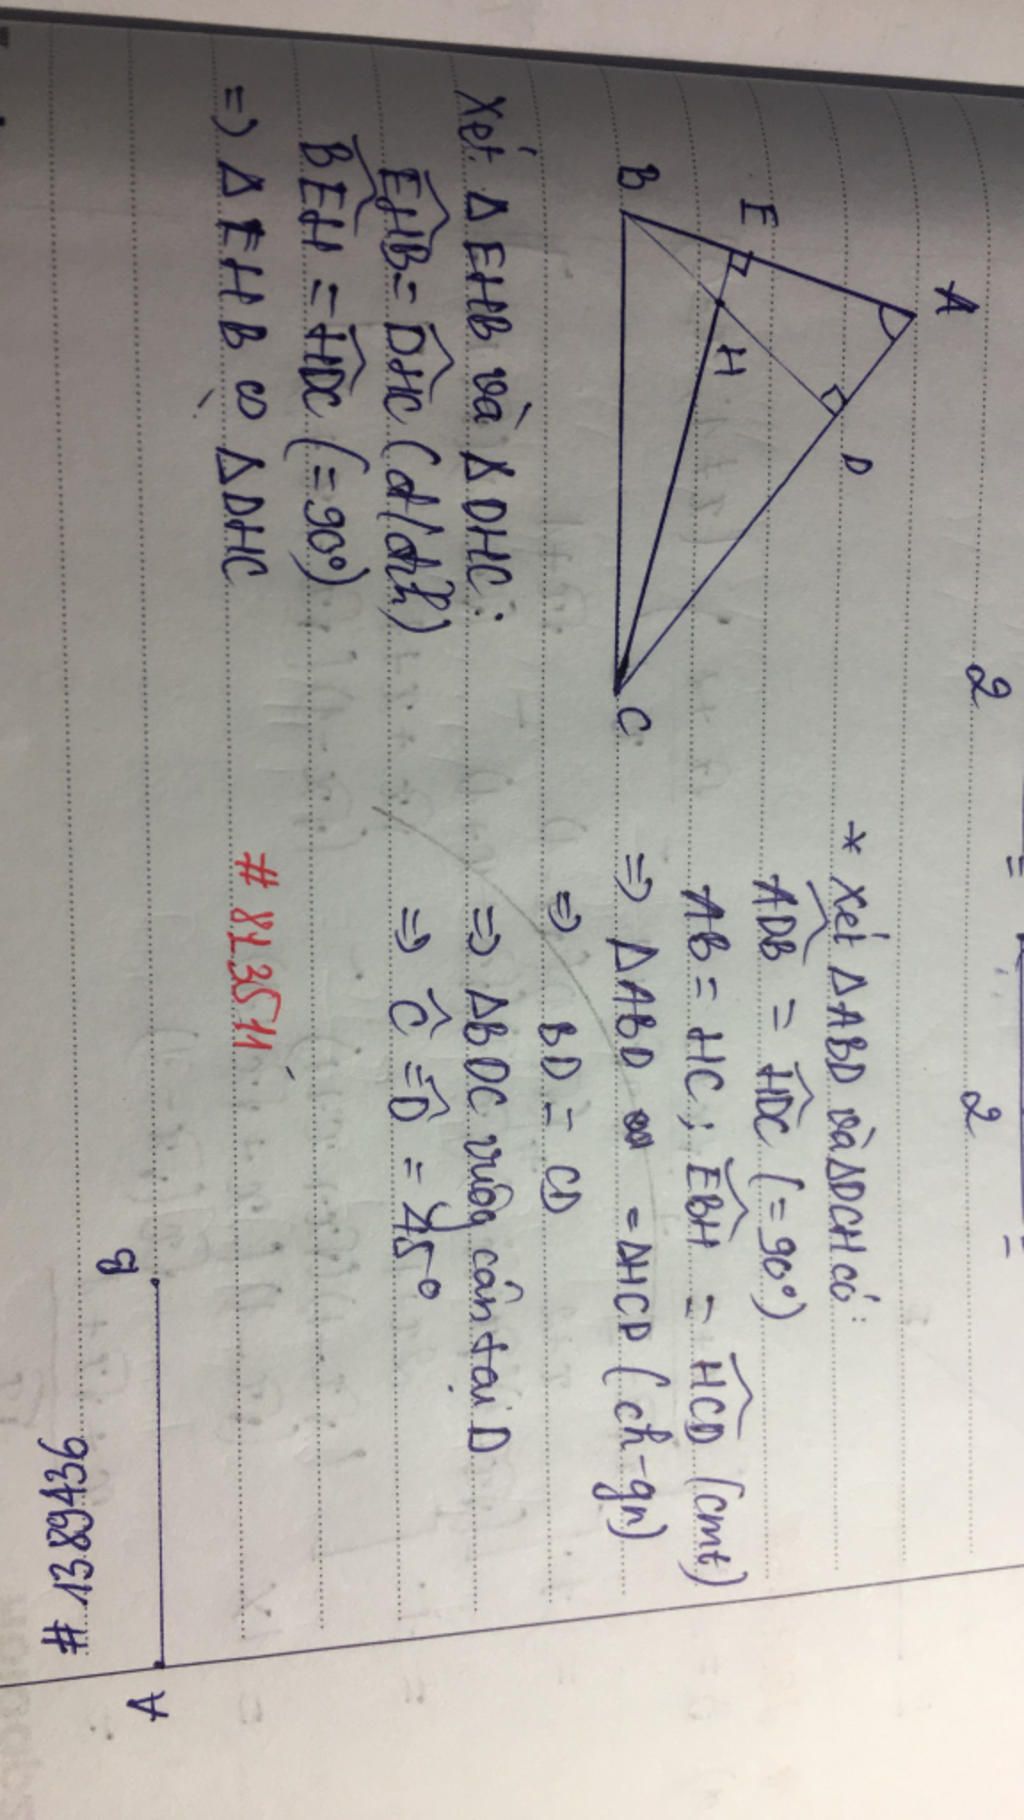 2
2
A
E
D
H
B
C
Xét △EHB và △DHC:
EHB = DHC (đ/đỉnh)
BEH = HDC (= 90°)
=> △EHB ∽ △DHC
* Xét △ABD và △DCH có:
ADB = HDC (= 90°)
AB = HC; EBH = HCD (cmt)
=> △ABD = △HCD (ch-gn)
=> BD = CD
=> △BDC vuông cân tại D
=> C = D = 45°
# 823511
B
A
# 1389436